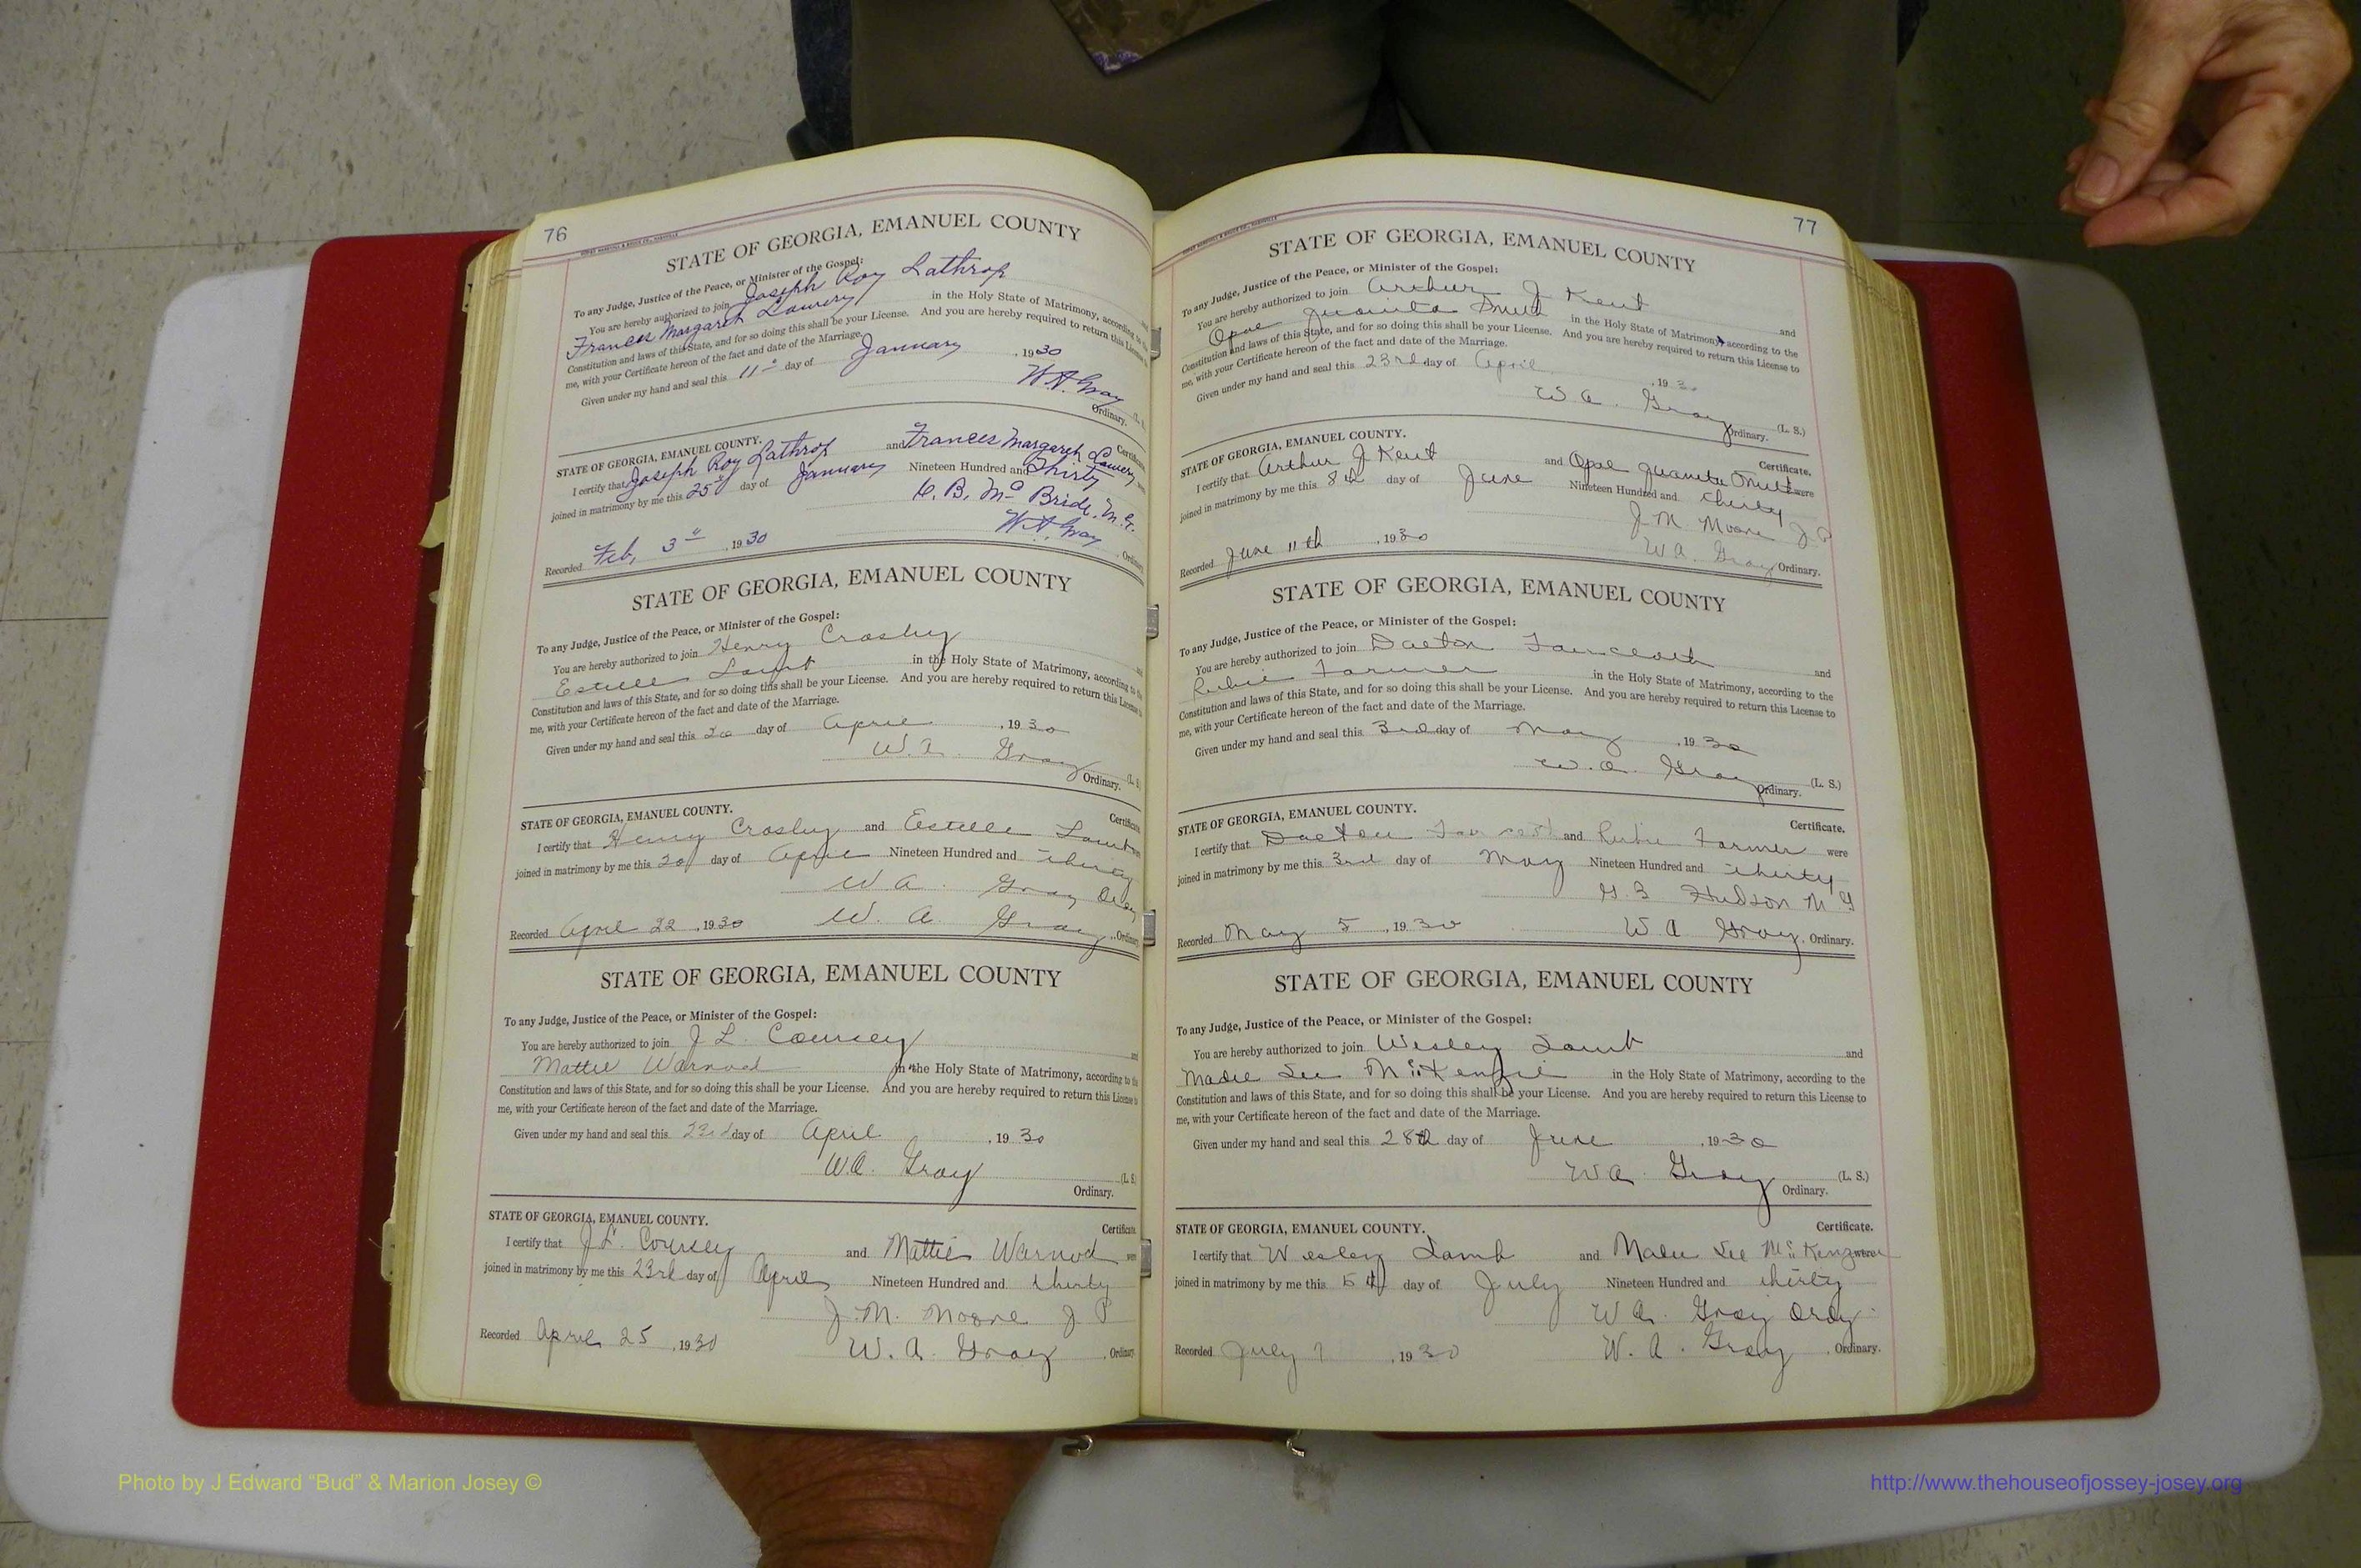 76
STATE OF GEORGIA, EMANUEL COUNTY
To any Judge, Justice of the Peace, or Minister of the Gospel:
You are hereby authorized to join Joseph Roy Lathrop
Frances Margaret Lowery in the Holy State of Matrimony, according to the
Constitution and laws of this State, and for so doing this shall be your License. And you are hereby required to return this License
me, with your Certificate hereon of the fact and date of the Marriage.
Given under my hand and seal this 11" day of January, 1930
W. A. Gray
Ordinary.
STATE OF GEORGIA, EMANUEL COUNTY. Certificate
I certify that Joseph Roy Lathrop and Frances Margaret Lowery
joined in matrimony by me this 25" day of January Nineteen Hundred and Thirty
B. Mc Bride
Recorded Feb, 3", 1930 W. A. Gray
STATE OF GEORGIA, EMANUEL COUNTY
To any Judge, Justice of the Peace, or Minister of the Gospel:
You are hereby authorized to join Henry Crosby
Estelle in the Holy State of Matrimony, according to the
Constitution and laws of this State, and for so doing this shall be your License. And you are hereby required to return this License
me, with your Certificate hereon of the fact and date of the Marriage.
Given under my hand and seal this 20 day of April, 1930
W. A. Gray (L. S.
Ordinary.
STATE OF GEORGIA, EMANUEL COUNTY. Certificate
I certify that Henry Crosby and Estelle
joined in matrimony by me this 20 day of April Nineteen Hundred and thirty
W A. Gray Ordy
Recorded April 22, 1930 W. A. Gray, Ordinary
STATE OF GEORGIA, EMANUEL COUNTY
To any Judge, Justice of the Peace, or Minister of the Gospel:
You are hereby authorized to join J L. Coursey and
Mattie Warnod in the Holy State of Matrimony, according to the
Constitution and laws of this State, and for so doing this shall be your License. And you are hereby required to return this License to
me, with your Certificate hereon of the fact and date of the Marriage.
Given under my hand and seal this 23rd day of April, 1930
W. A. Gray (L. S.
Ordinary.
STATE OF GEORGIA, EMANUEL COUNTY. Certificate
I certify that J. L. Coursey and Mattie Warnod were
joined in matrimony by me this 23rd day of April Nineteen Hundred and thirty
J. M. Moore J P
Recorded April 25, 1930 W. A. Gray, Ordinary
77
STATE OF GEORGIA, EMANUEL COUNTY
To any Judge, Justice of the Peace, or Minister of the Gospel:
You are hereby authorized to join Arthur J Kent and
Opal Juanita Smith in the Holy State of Matrimony, according to the
Constitution and laws of this State, and for so doing this shall be your License. And you are hereby required to return this License to
me, with your Certificate hereon of the fact and date of the Marriage.
Given under my hand and seal this 23rd day of April, 1930
W. A. Gray (L. S.)
Ordinary.
STATE OF GEORGIA, EMANUEL COUNTY. Certificate.
I certify that Arthur J Kent and Opal Juanita Smith were
joined in matrimony by me this 8th day of June Nineteen Hundred and thirty
J. M. Moore J P
Recorded June 11th, 1930 W. A. Gray Ordinary.
STATE OF GEORGIA, EMANUEL COUNTY
To any Judge, Justice of the Peace, or Minister of the Gospel:
You are hereby authorized to join Dalton Faircloth and
Rubie Farmer in the Holy State of Matrimony, according to the
Constitution and laws of this State, and for so doing this shall be your License. And you are hereby required to return this License to
me, with your Certificate hereon of the fact and date of the Marriage.
Given under my hand and seal this 3rd day of May, 1930
W. A. Gray (L. S.)
Ordinary.
STATE OF GEORGIA, EMANUEL COUNTY. Certificate.
I certify that Dalton and Rubie Farmer were
joined in matrimony by me this 3rd day of May Nineteen Hundred and thirty
Hudson M G
Recorded May 5, 1930 W A Gray. Ordinary.
STATE OF GEORGIA, EMANUEL COUNTY
To any Judge, Justice of the Peace, or Minister of the Gospel:
You are hereby authorized to join Wesley Lamb and
Madie Lee McKenzie in the Holy State of Matrimony, according to the
Constitution and laws of this State, and for so doing this shall be your License. And you are hereby required to return this License to
me, with your Certificate hereon of the fact and date of the Marriage.
Given under my hand and seal this 28th day of June, 1930
W A Gray (L. S.)
Ordinary.
STATE OF GEORGIA, EMANUEL COUNTY. Certificate.
I certify that Wesley Lamb and Lee McKenzie were
joined in matrimony by me this 5th day of July Nineteen Hundred and thirty
W A. Gray Ordy
Recorded July 7, 1930 W. A. Gray. Ordinary.
Photo by J Edward “Bud” & Marion Josey ©
http://www.thehouseofjossey-josey.org